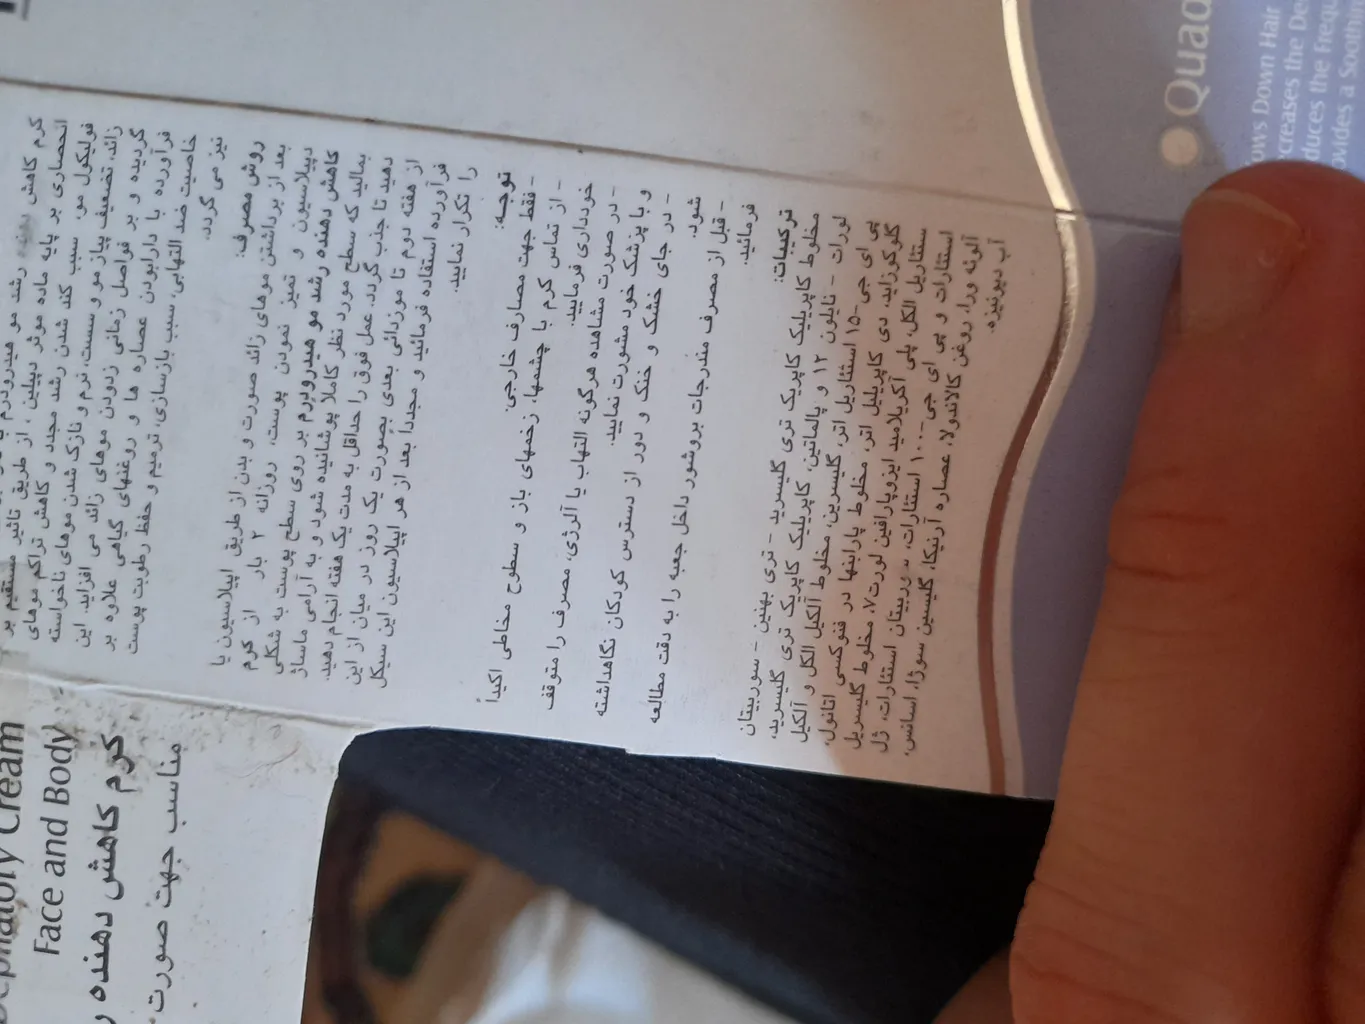 کرم کاهش دهنده رشد مو هیدرودرم با
انحصاری بر پایه ماده موثر دپیلین ، از طریق تاثیر مستقیم بر
فولیکول مو، سبب کند شدن رشد مجدد و کاهش تراکم موهای
زائد، تضعیف پیاز مو و سست، نرم و نازک شدن موهای ناخواسته
گردیده و بر فواصل زمانی زدودن موهای زائد می افزاید. این
فرآورده با دارابودن عصاره ها و روغنهای گیاهی علاوه بر
خاصیت ضد التهابی، سبب بازسازی، ترمیم و حفظ رطوبت پوست
نیز می گردد.
روش مصرف:
بعد از برداشتن موهای زائد صورت و بدن از طریق اپیلاسیون یا
دپیلاسیون و تمیز نمودن پوست، روزانه ۲ بار از کرم
کاهش دهنده رشد مو هیدرودرم بر روی سطح پوست به شکلی
بمالید که سطح مورد نظر کاملا پوشانیده شود و به آرامی ماساژ
دهید تا جذب گردد. عمل فوق را حداقل به مدت یک هفته انجام دهید.
از هفته دوم تا موزدائی بعدی بصورت یک روز در میان از این
فرآورده استفاده فرمائید و مجدداً بعد از هر اپیلاسیون این سیکل
را تکرار نمایید.
توجه:
- فقط جهت مصارف خارجی.
- از تماس کرم با چشمها، زخمهای باز و سطوح مخاطی اکیداً
خودداری فرمایید.
- در صورت مشاهده هرگونه التهاب یا آلرژی، مصرف را متوقف
و با پزشک خود مشورت نمایید.
- در جای خشک و خنک و دور از دسترس کودکان نگاهداشته
شود.
- قبل از مصرف مندرجات بروشور داخل جعبه را به دقت مطالعه
فرمائید.
ترکیبات:
مخلوط کاپریلیک کاپریک تری گلیسرید - تری بهنین - سوربیتان
لورات - نایلون ۱۲ و پالماتین، کاپریلیک کاپریک تری گلیسرید،
پی ای جی-۱۵ استئاریل اتر، گلیسرین، مخلوط آلکیل الکل و آلکیل
گلوکوزاید، دی کاپریلیل اتر، مخلوط پارابنها در فنوکسی اتانول،
ستئاریل الکل، پلی آکریلامید ایزوپارافین لورت۷، مخلوط گلیسریل
استئارات و پی ای جی-۱۰۰ استئارات، سوربیتان استئارات، ژل
آلوئه ورا، روغن کالاندولا، عصاره آرنیکا، گلیسین سوژا، اسانس،
آب دیونیزه.
Depilatory Cream
Face and Body
کرم کاهش دهنده
مناسب جهت صورت
Quad
ows Down Hair
creases the De
duces the Frequ
ovides a Soothin